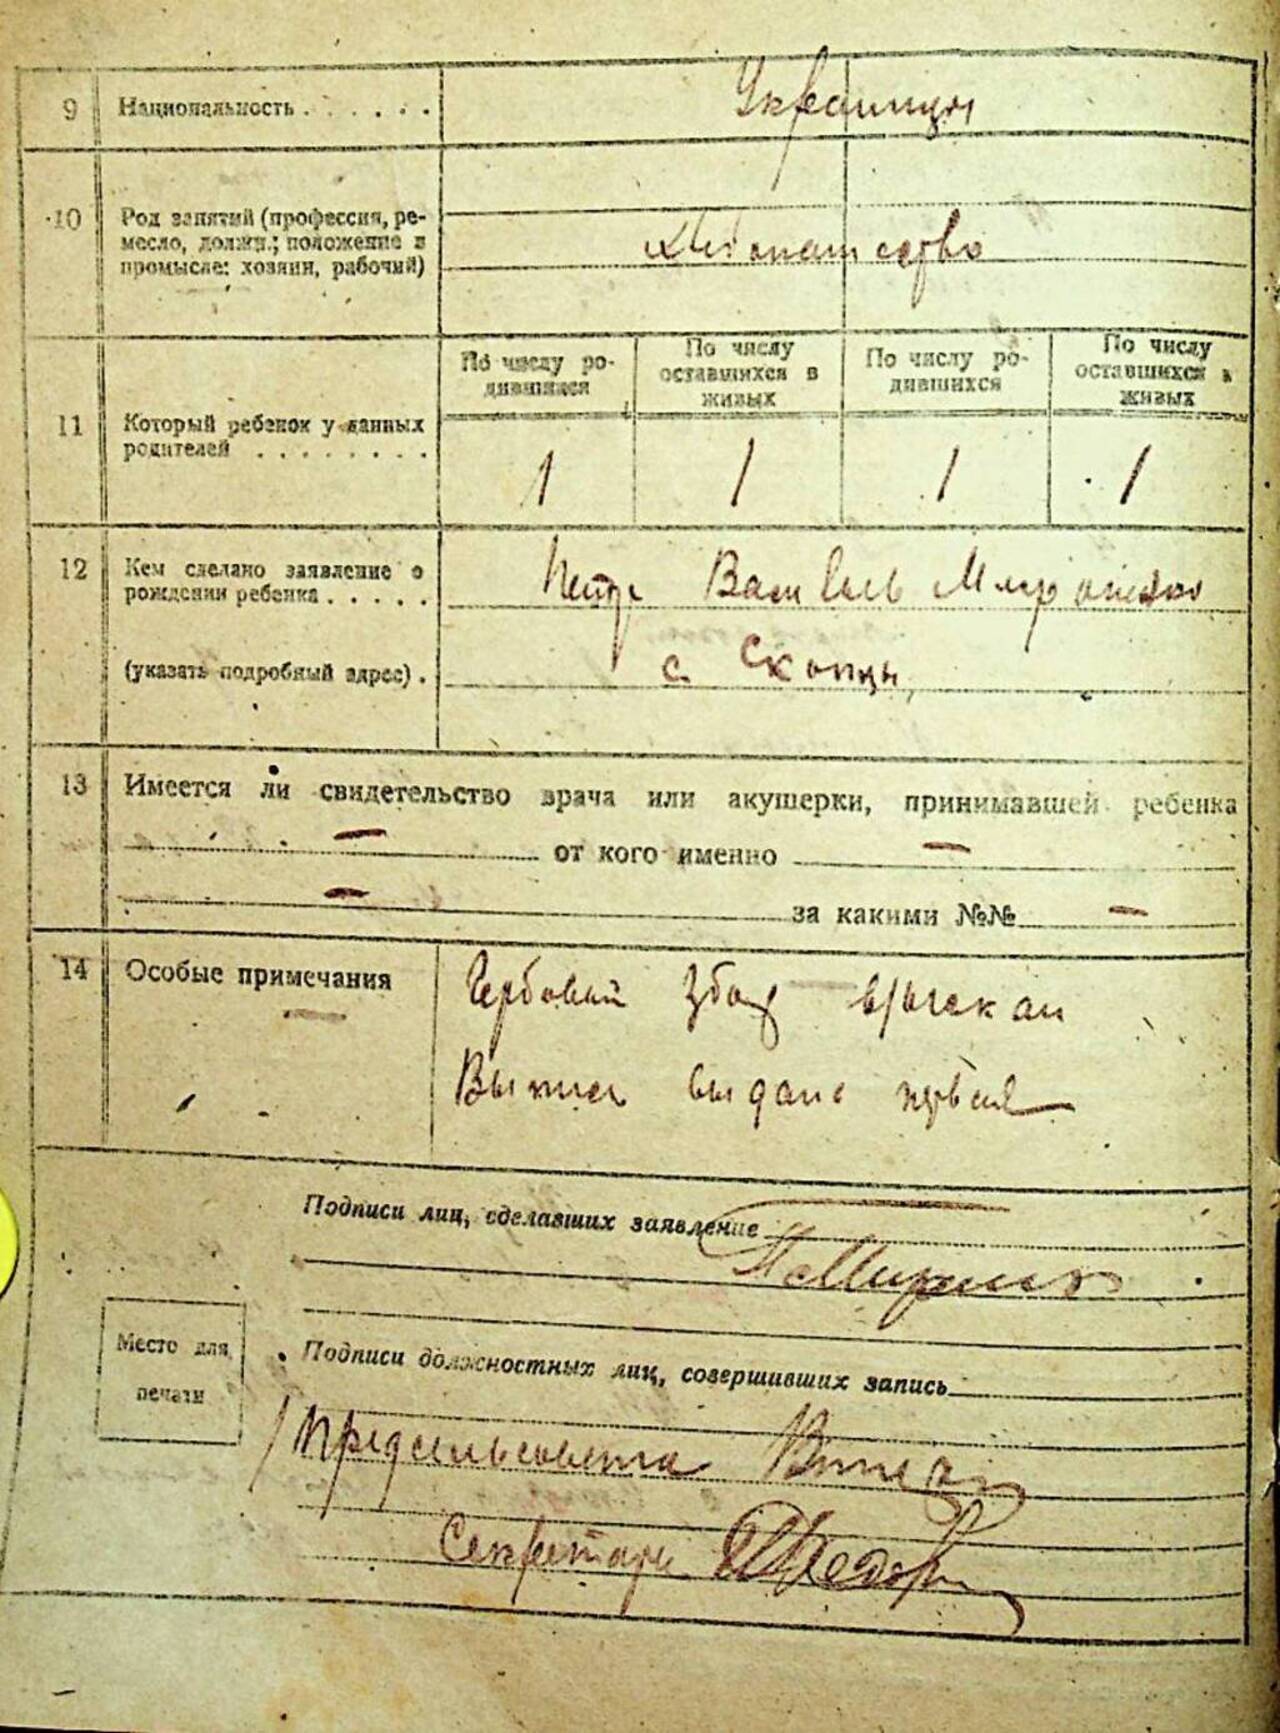 9 Национальность . . . . . . Украинцы
10 Род занятий (профессия, ре-
месло, должн.; положение в
промысле: хозяин, рабочий)
Хлебопашество
По числу ро-
дившихся
По числу
оставшихся в
живых
По числу ро-
дившихся
По числу
оставшихся в
живых
11 Который ребенок у данных
родителей . . . . . . . .
1 1 1 1
12 Кем сделано заявление о
рождении ребенка . . . . .
(указать подробный адрес) .
Петр
с. Скопцы
13 Имеется ли свидетельство врача или акушерки, принимавшей ребенка
— от кого именно —
— за какими №№ —
14 Особые примечания
Гербовый збор взыскан
Выпись выдана
Подписи лиц, сделавших заявление
Место для
печати
Подписи должностных лиц, совершивших запись
Предсельсовета
Секретарь